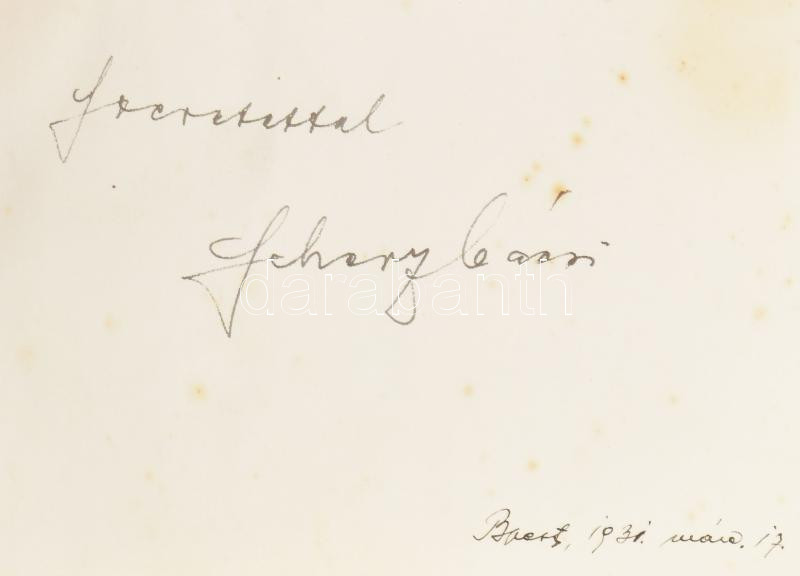 Szeretettel
Scherz bácsi
darabanth
Bpest, 1931. márc. 17.